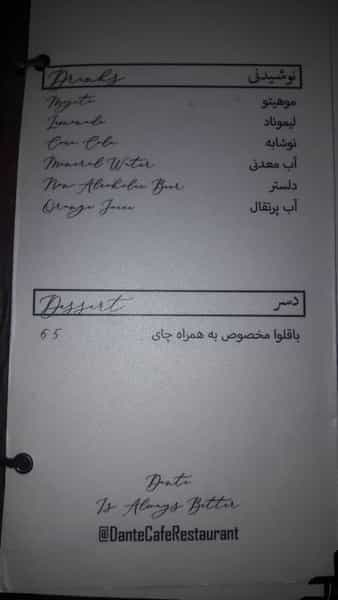 Drinks نوشیدنی
Mojito موهیتو
Lemonade لیموناد
Coca Cola نوشابه
Mineral Water آب معدنی
Non Alcoholic Beer دلستر
Orange Juice آب پرتقال
Dessert دسر
65 باقلوا مخصوص به همراه چای
Dante
Is Always Better
@DanteCafeRestaurant